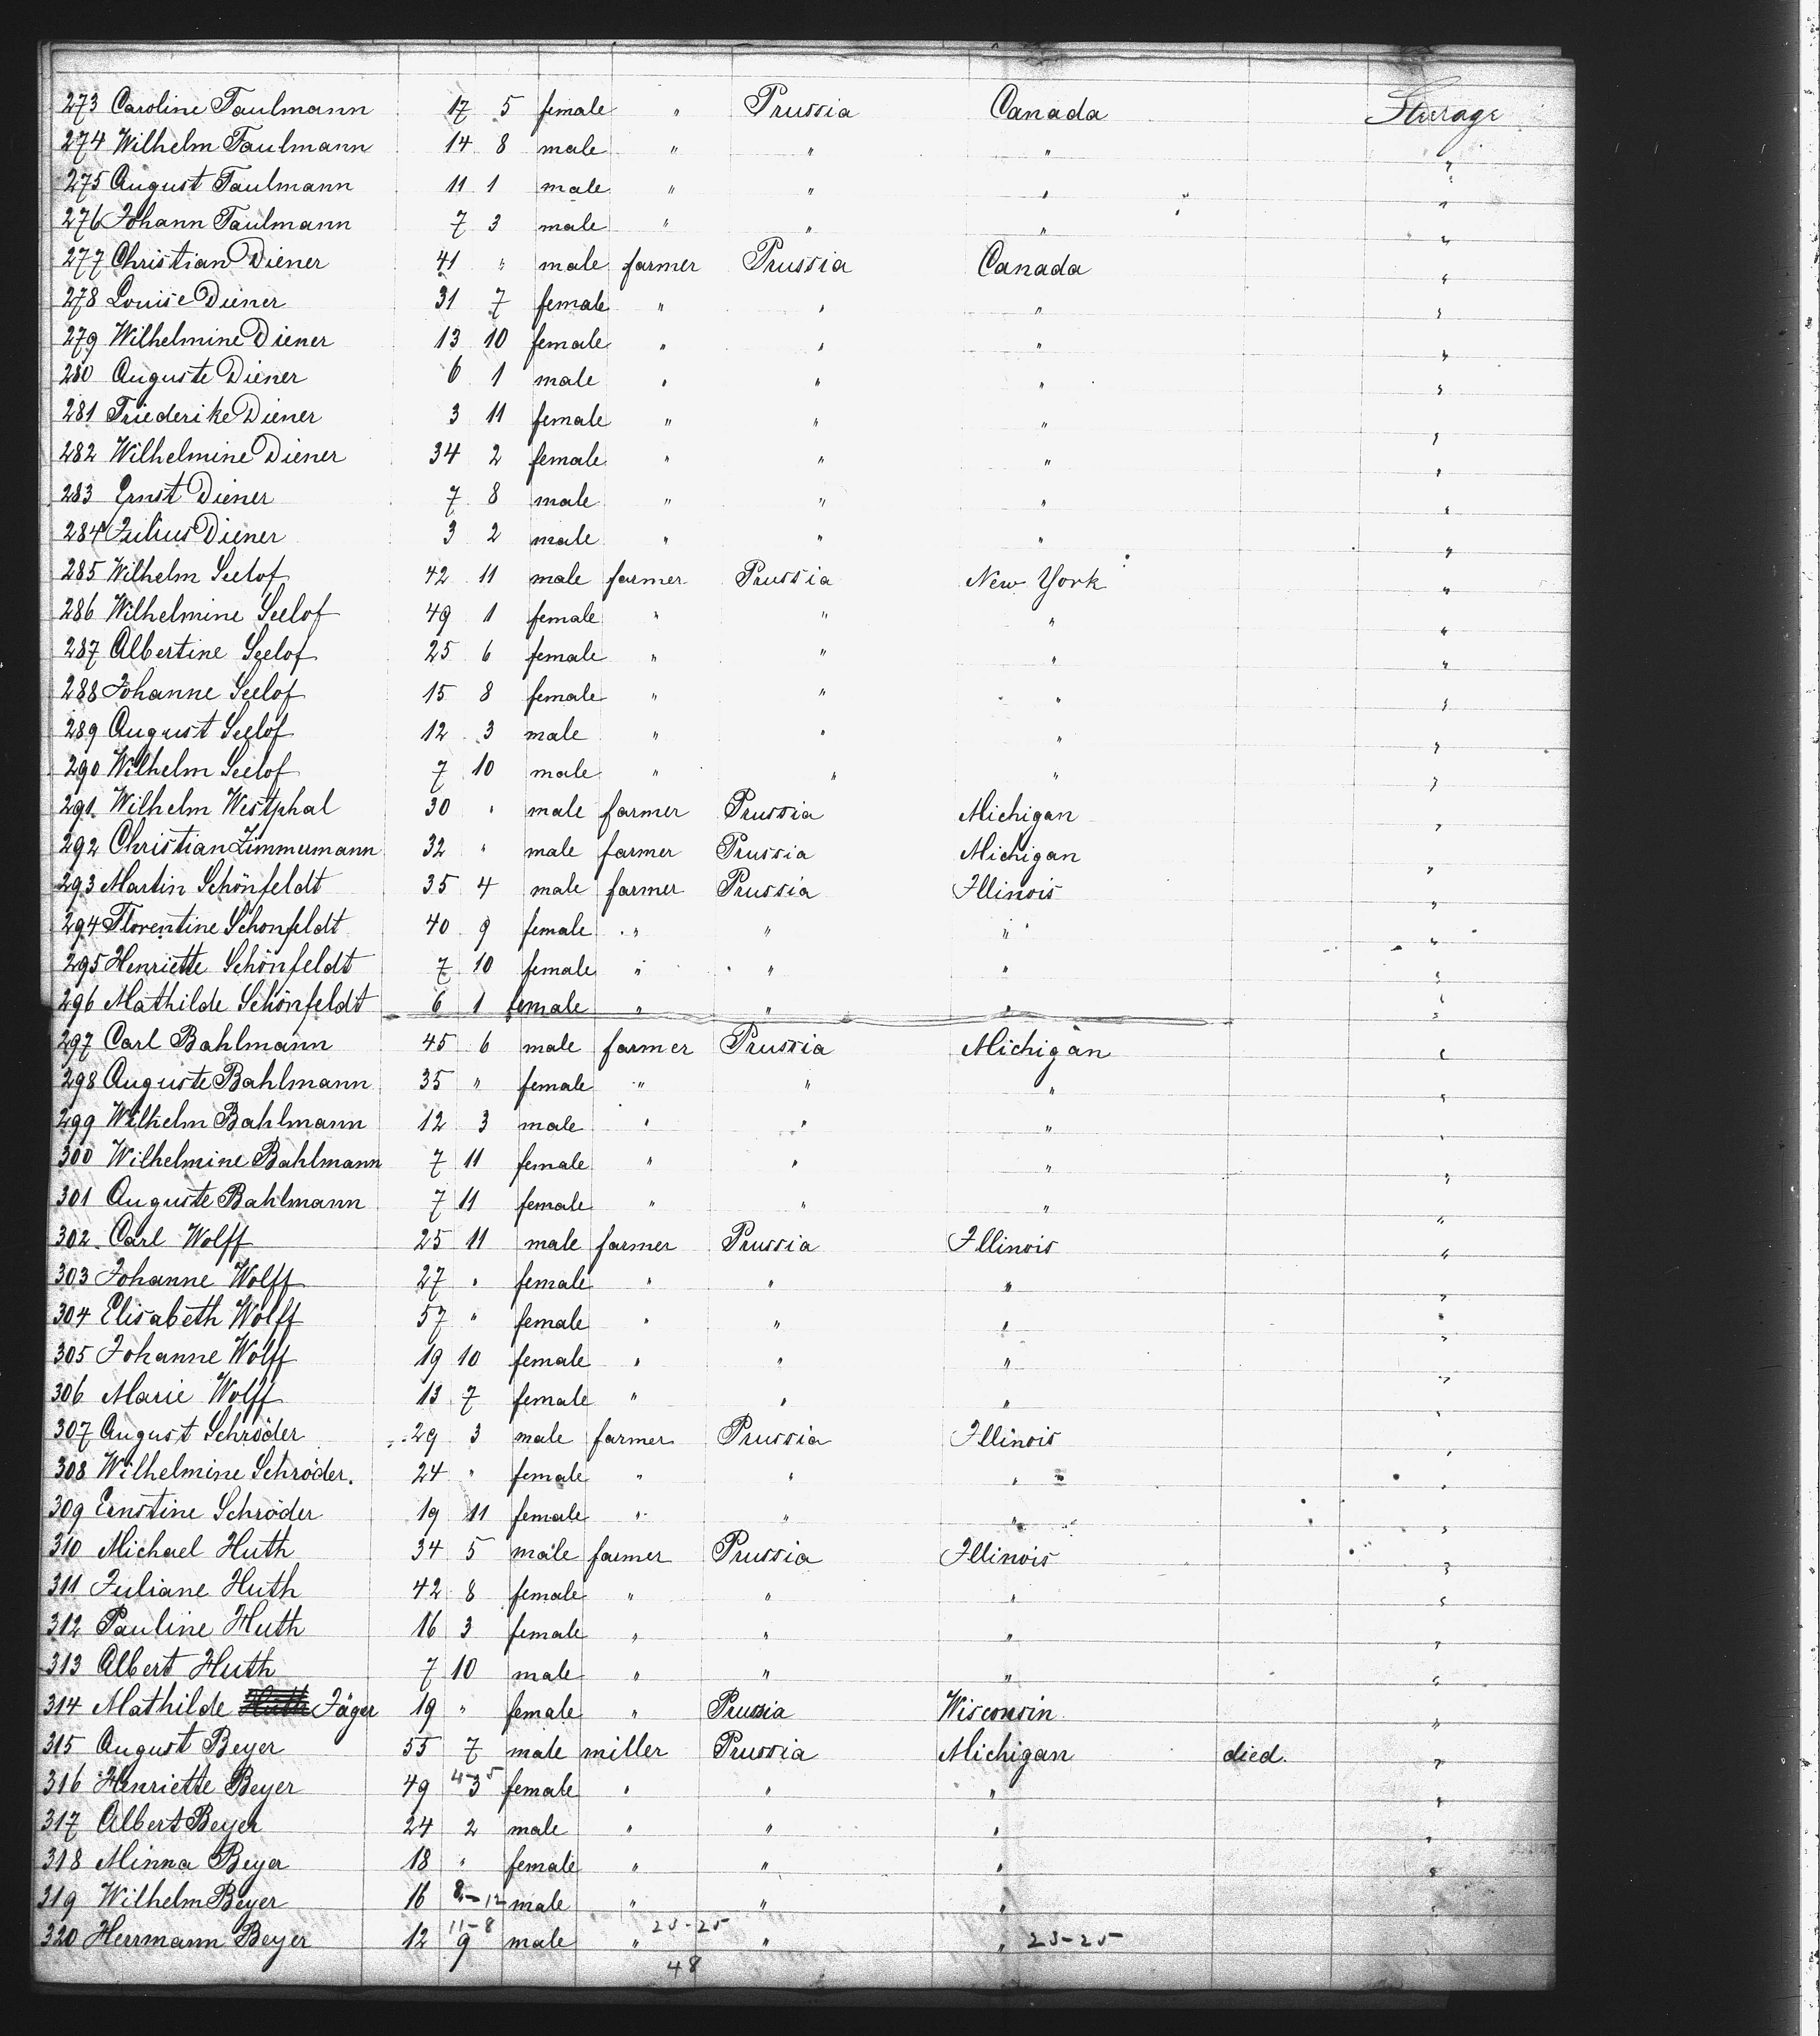 273 Caroline Taulmann 17 5 female " Prussia Canada Steerage
274 Wilhelm Taulmann 14 8 male " " " "
275 August Taulmann 11 1 male " " " "
276 Johann Taulmann 7 3 male " " " "
277 Christian Diener 41 " male farmer Prussia Canada "
278 Louise Diener 31 7 female " " " "
279 Wilhelmine Diener 13 10 female " " " "
280 Auguste Diener 6 1 male " " " "
281 Friederike Diener 3 11 female " " " "
282 Wilhelmine Diener 34 2 female " " " "
283 Ernst Diener 7 8 male " " " "
284 Julius Diener 3 2 male " " " "
285 Wilhelm Seelof 42 11 male farmer Prussia New York "
286 Wilhelmine Seelof 49 1 female " " " "
287 Albertine Seelof 25 6 female " " " "
288 Johanne Seelof 15 8 female " " " "
289 August Seelof 12 3 male " " " "
290 Wilhelm Seelof 7 10 male " " " "
291. Wilhelm Westphal 30 " male farmer Prussia Michigan "
292 Christian Zimmermann 32 " male farmer Prussia Michigan "
293 Martin Schönfeldt 35 4 male farmer Prussia Illinois "
294 Florentine Schonfeldt 40 9 female " " " "
295 Henriette Schönfeldt 7 10 female " " " "
296 Mathilde Schönfeldt 6 1 female " " " "
297 Carl Bahlmann 45 6 male farmer Prussia Michigan "
298 Auguste Bahlmann 35 " female " " " "
299 Wilhelm Bahlmann 12 3 male " " " "
300 Wilhelmine Bahlmann 7 11 female " " " "
301 Auguste Bahlmann 7 11 female " " " "
302. Carl Wolff 25 11 male farmer Prussia Illinois "
303 Johanne Wolff 27 " female " " " "
304 Elisabeth Wolff 57 " female " " " "
305 Johanne Wolff 19 10 female " " " "
306 Marie Wolff 13 7 female " " " "
307 August Schröder 29 3 male farmer Prussia Illinois "
308 Wilhelmine Schröder. 24 " female " " " "
309 Ernstine Schröder 19 11 female " " " "
310 Michael Huth 34 5 male farmer Prussia Illinois "
311 Juliane Huth 42 8 female " " " "
312 Pauline Huth 16 3 female " " " "
313 Albert Huth 7 10 male " " " "
314 Mathilde Huth Jäger 19 " female " Prussia Wisconsin "
315 August Beyer 55 7 male miller Prussia Michigan died. "
316 Henriette Beyer 49 4-5 3 female " " " "
317 Albert Beyer 24 2 male " " " "
318 Minna Beyer 18 " female " " " "
319 Wilhelm Beyer 16 8-12 male " " " "
11-8 23-25
320 Herrmann Beyer 12 9 male " " " 23-25
48